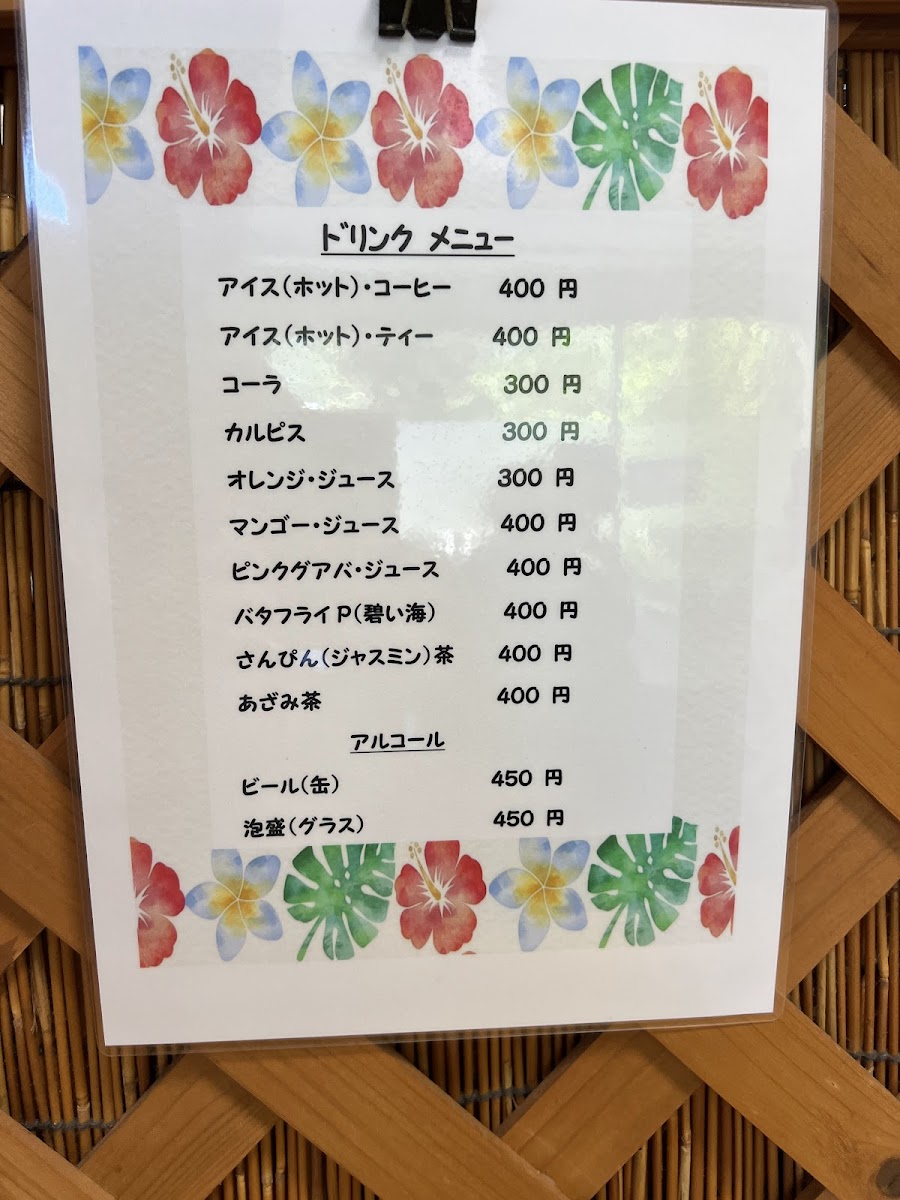 ドリンク メニュー
アイス(ホット)・コーヒー 400 円
アイス(ホット)・ティー 400 円
コーラ 300 円
カルピス 300 円
オレンジ・ジュース 300 円
マンゴー・ジュース 400 円
ピンクグアバ・ジュース 400 円
バタフライP(碧い海) 400 円
さんぴん(ジャスミン)茶 400 円
あざみ茶 400 円
アルコール
ビール(缶) 450 円
泡盛(グラス) 450 円